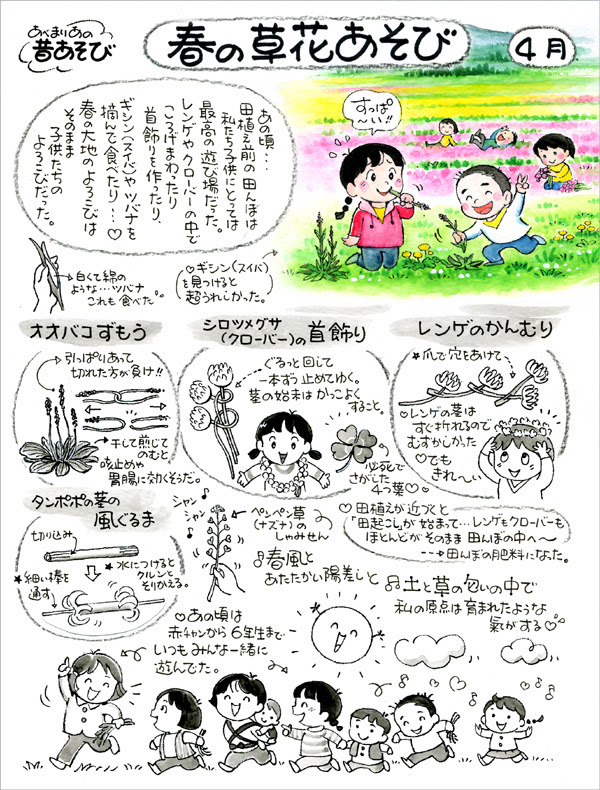 あべまりあの
昔あそび
春の草花あそび
4月
あの頃…
田植え前の田んぼは
私たち子供にとっては
最高の遊び場だった。
レンゲやクローバーの中で
ころげまわったり
首飾りを作ったり、
ギシン(スイバ)やツバナを
摘んで食べたり…♡
春の大地のよろこびは
そのまま
子供たちの
よろこびだった。
すっぱ
〜い!!
白くて綿の
ような…ツバナ
これも食べた。
♡ギシン(スイバ)
を見つけると
超うれしかった。
オオバコずもう
引っぱりあって
切れた方が負け!!
干して煎じて
のむと
咳止めや
胃腸に効くそうだ。
シロツメグサ
(クローバー)の首飾り
ぐるっと回して
一本ずつ止めてゆく。
茎の始末はかっこよく
すること。
必死で
さがした
4つ葉♡
レンゲのかんむり
★爪で穴をあけて
♡レンゲの茎は
すぐ折れるので
むずかしかった
♡でも
きれ〜い
タンポポの茎の
風ぐるま
切り込み
★水につけると
クルンと
そりかえる。
★細い棒を
通す
シャン
シャン
ペンペン草
(ナズナ)の
しゃみせん
♡田植えが近づくと
「田起こし」が始まって…レンゲもクローバーも
ほとんどがそのまま田んぼの中へ〜
→田んぼの肥料になった。
♫春風と
あたたかい陽差しと
♫土と草の匂いの中で
私の原点は育まれたような
氣がする♡
♡あの頃は
赤チャンから6年生まで
いつもみんな一緒に
遊んでた。